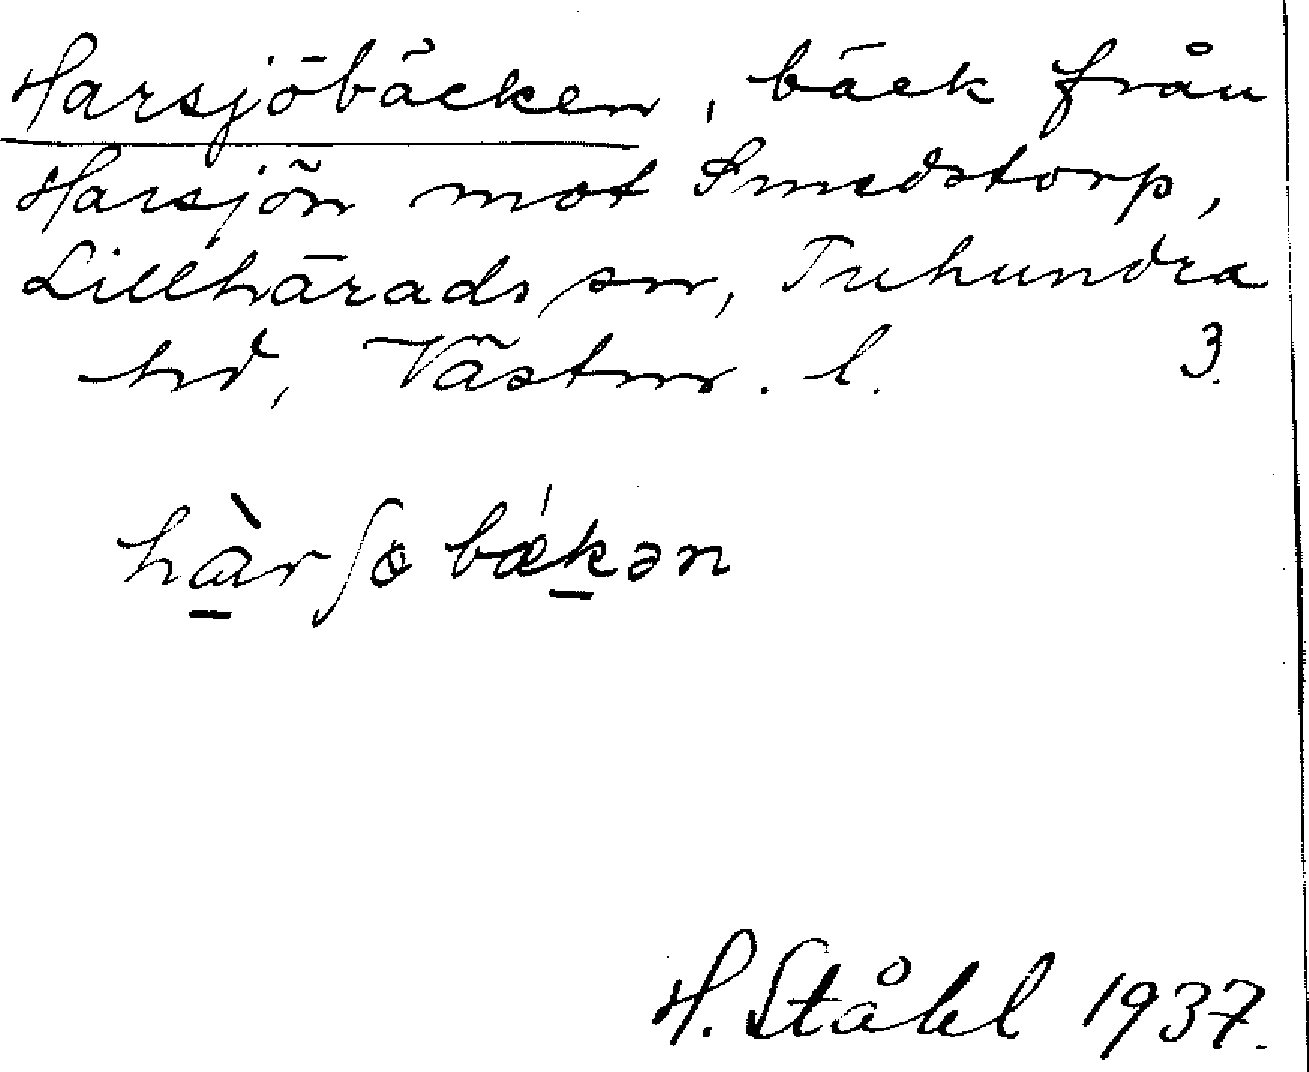 Harsjöbäcken, bäck från
Harsjön mot Smedstorp,
Lillhärads sn, Tuhundra
hd, Västm. l. 3.
hàrʃo bǽkən
H. Ståhl 1937.